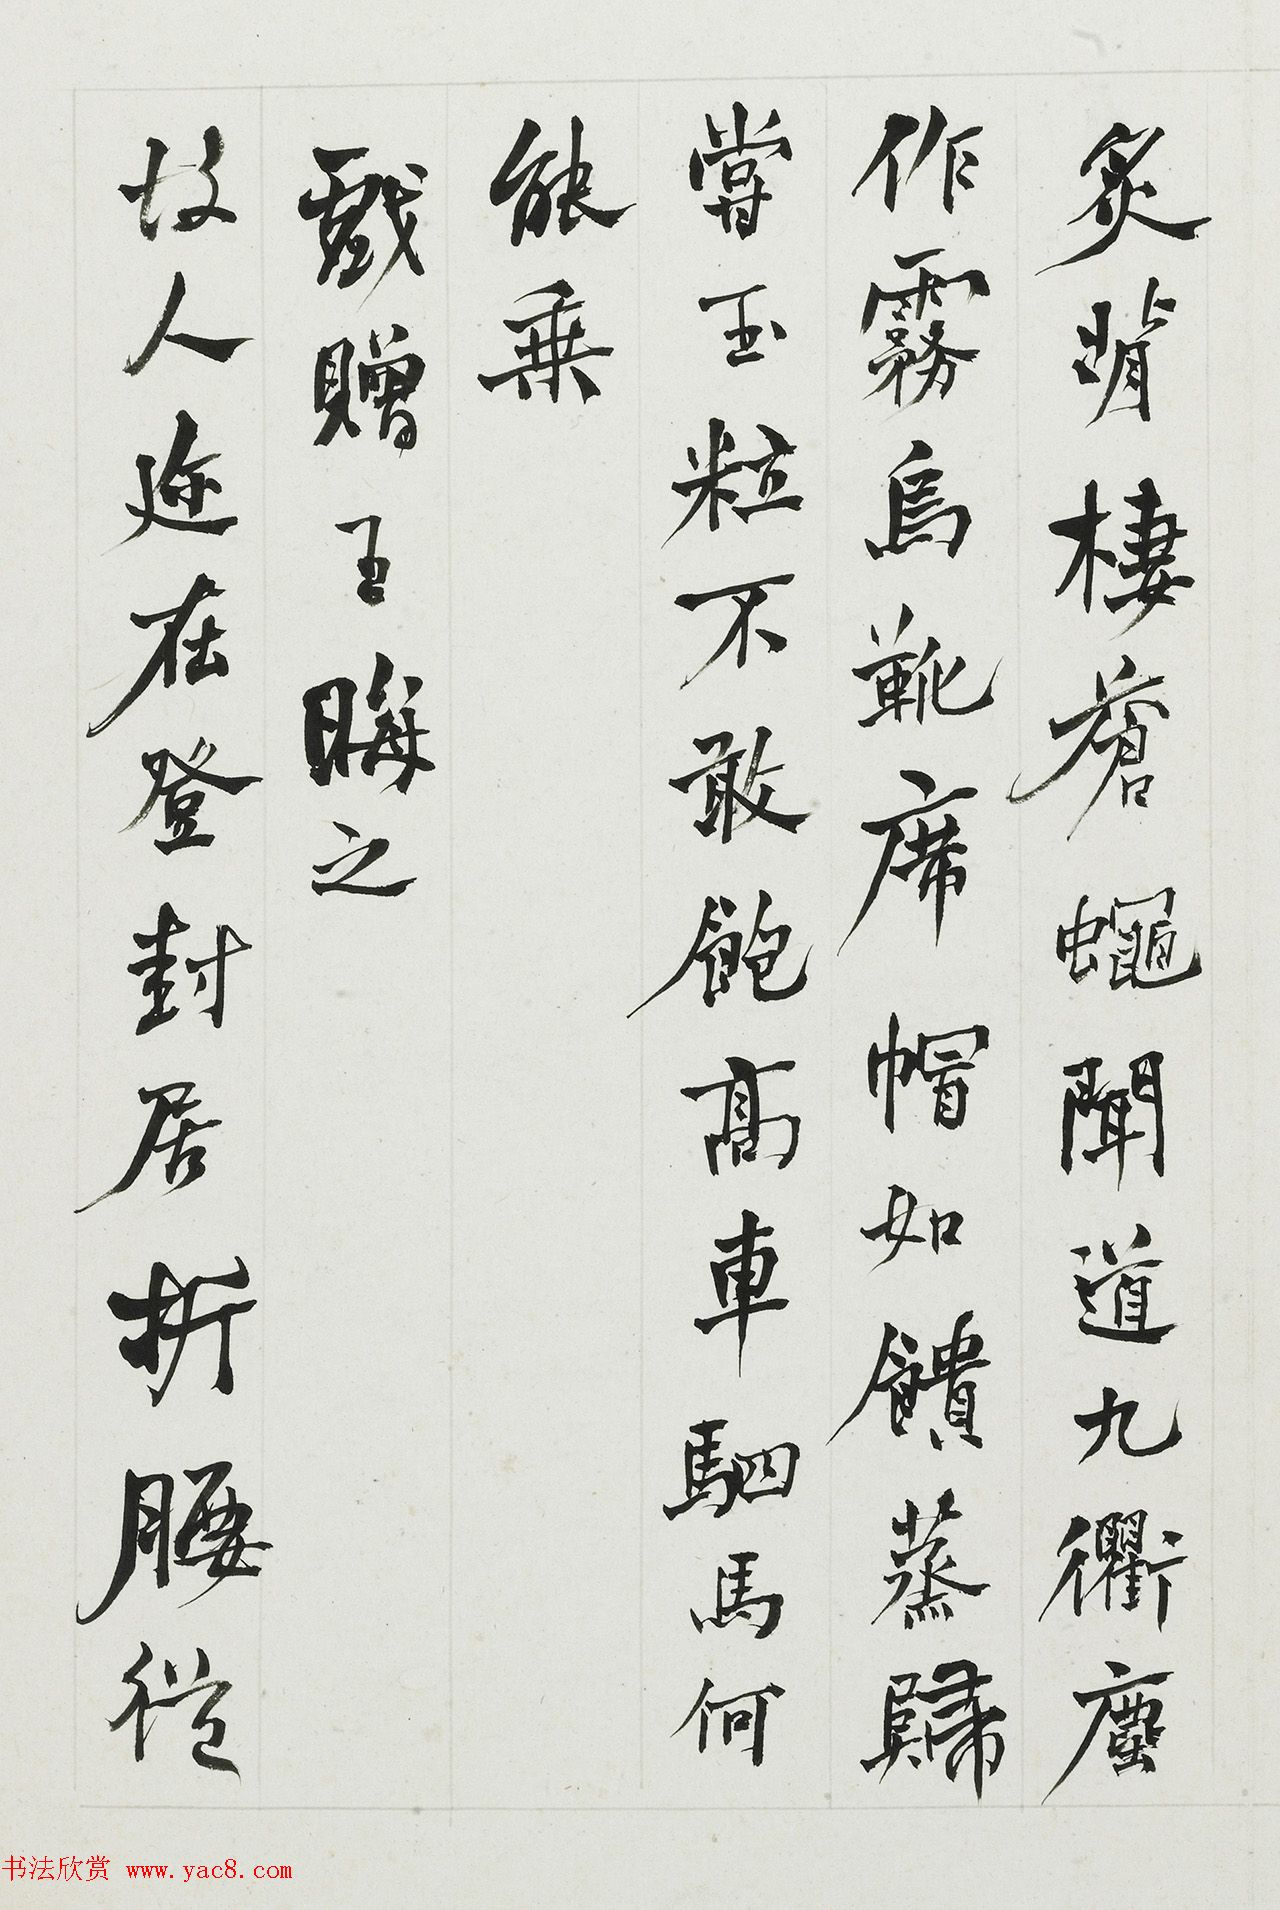 炙背棲蒼蠅聞道九衢塵
作霧烏靴席帽如饋蒸歸
嘗玉粒不敢飽高車駟馬何
能乘
戲贈王晦之
故人近在登封居折腰從
书法欣赏 www.yac8.com